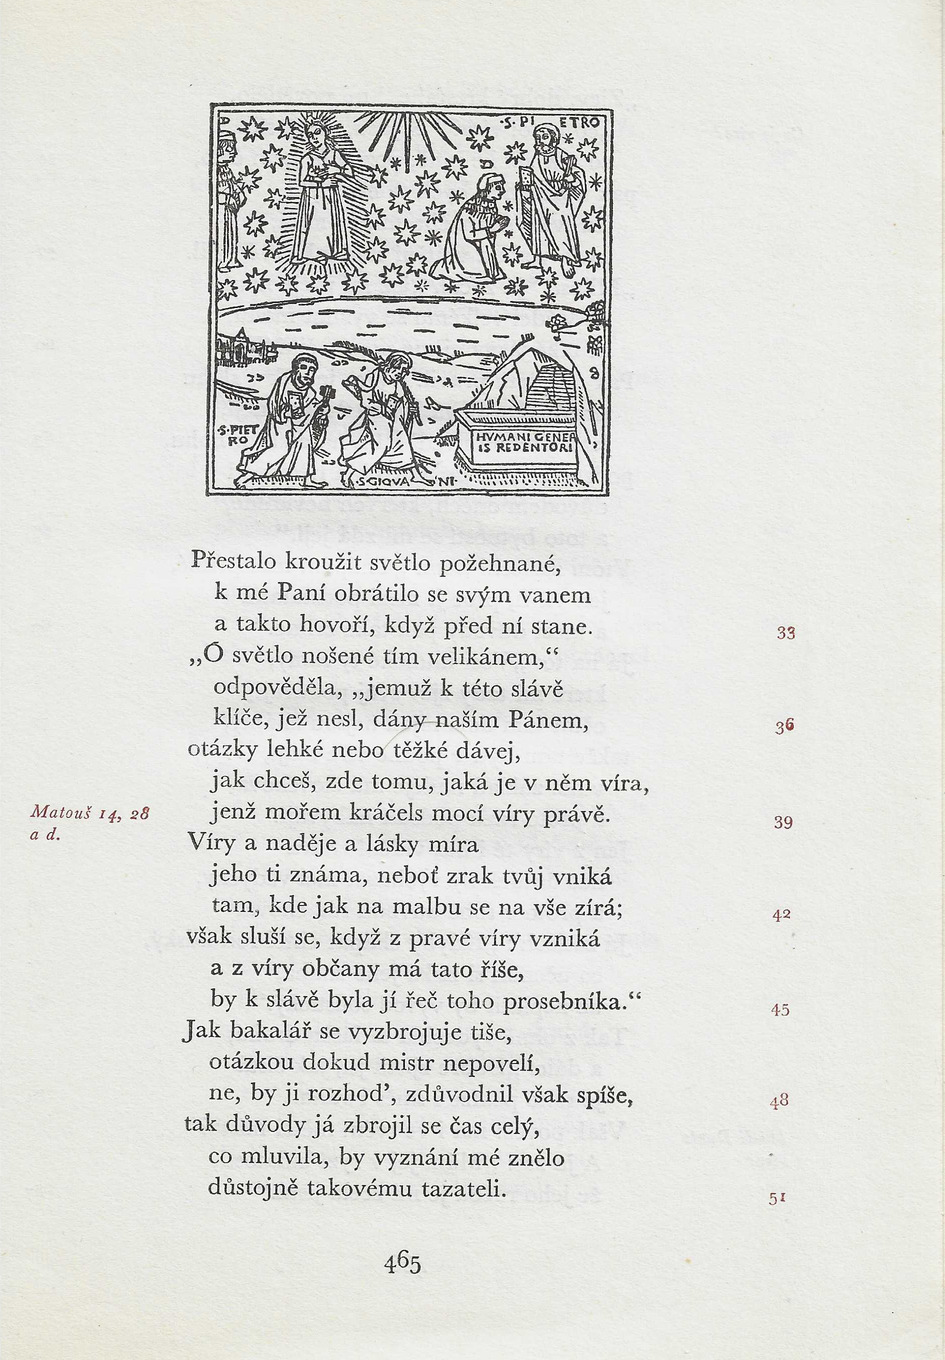 D
·S·PI ETRO
D
·S·PIET
RO
HVMANI GENER
IS REDENTORI
·S·GIOVA NI·
Přestalo kroužit světlo požehnané,
k mé Paní obrátilo se svým vanem
a takto hovoří, když před ní stane.
33
„Ó světlo nošené tím velikánem,“
odpověděla, „jemuž k této slávě
klíče, jež nesl, dány naším Pánem,
36
otázky lehké nebo těžké dávej,
jak chceš, zde tomu, jaká je v něm víra,
jenž mořem kráčels mocí víry právě.
39
Matouš 14, 28
a d.
Víry a naděje a lásky míra
jeho ti známa, neboť zrak tvůj vniká
tam, kde jak na malbu se na vše zírá;
42
však sluší se, když z pravé víry vzniká
a z víry občany má tato říše,
by k slávě byla jí řeč toho prosebníka.“
45
Jak bakalář se vyzbrojuje tiše,
otázkou dokud mistr nepovelí,
ne, by ji rozhod’, zdůvodnil však spíše,
48
tak důvody já zbrojil se čas celý,
co mluvila, by vyznání mé znělo
důstojně takovému tazateli.
51
465